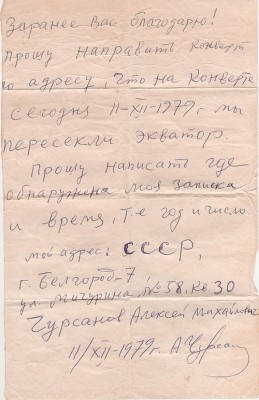 Заранее Вас благодарю!
Прошу направить конверт
по адресу, что на конверте
сегодня 11-XII-1979 г мы
пересекли экватор.
Прошу написать где
обнаружена моя записка
и время, т.е год и число
мой адрес: СССР,
г. Белгород-7,
ул. Мичурина № 58, кв 30
Чурсанов Алексей Михайлович
11/XII-1979 г. А Чурсан